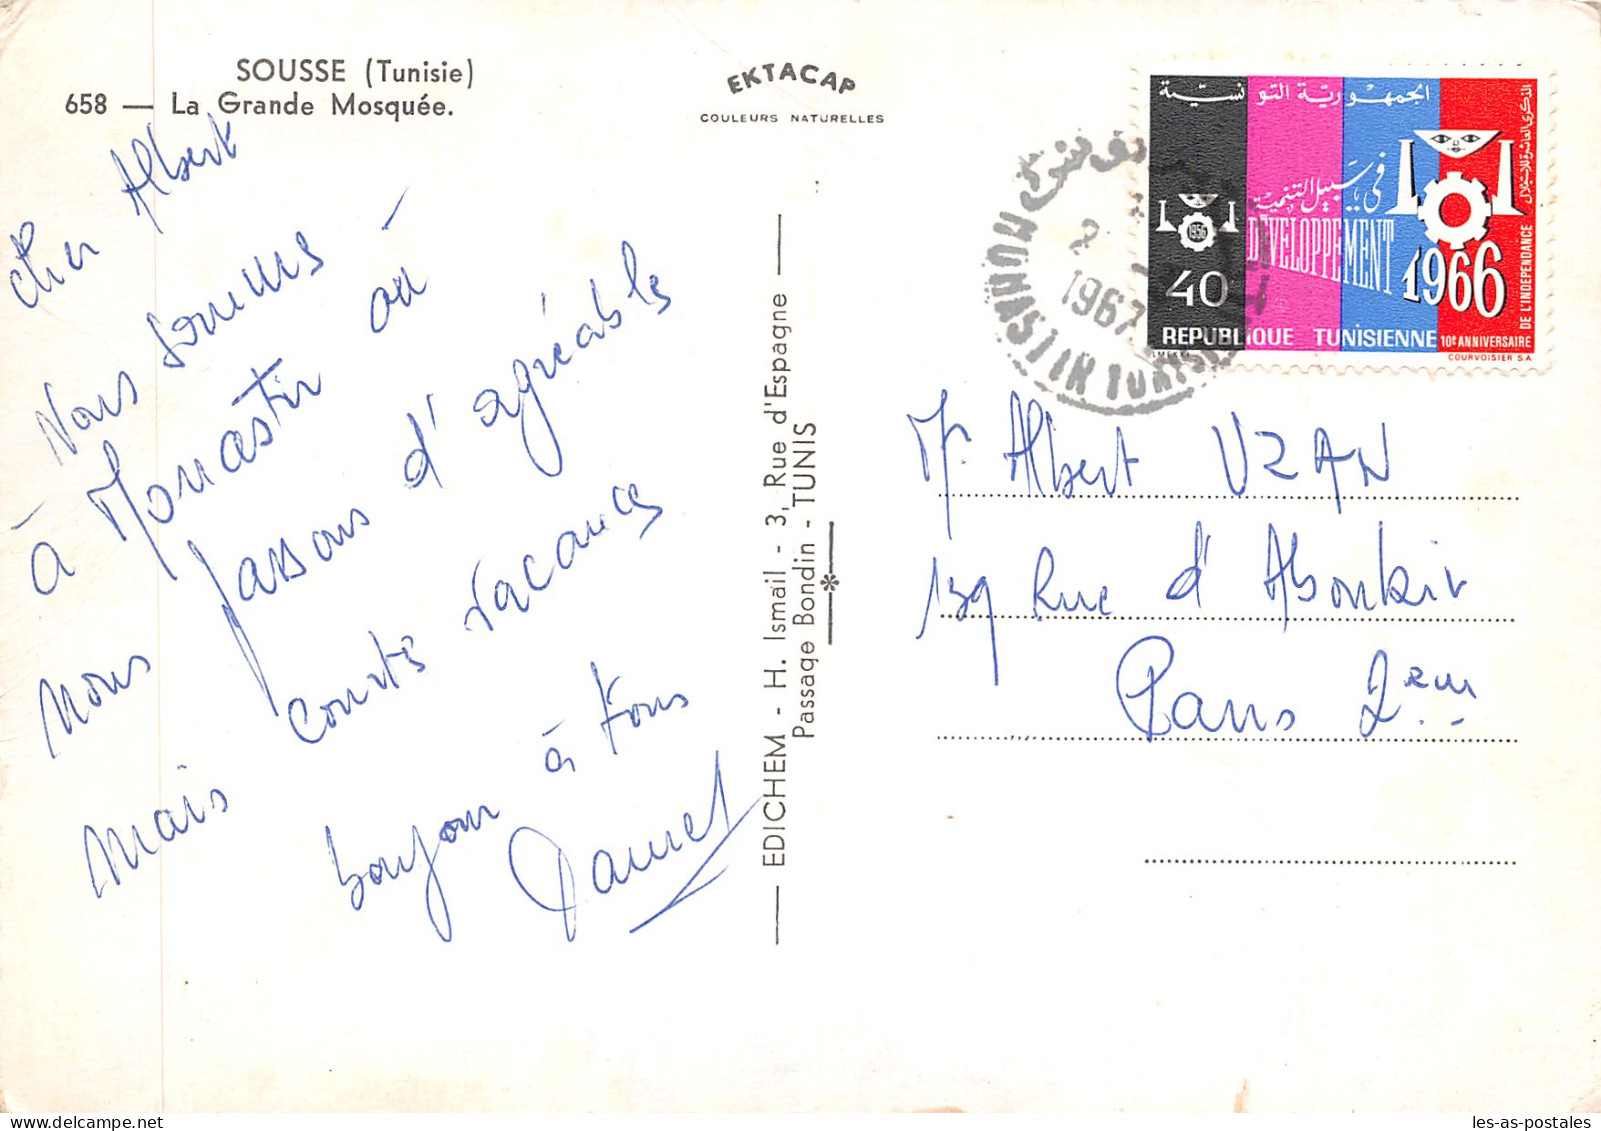 SOUSSE (Tunisie)
658 — La Grande Mosquée.
EKTACAP
COULEURS NATURELLES
cher Albert
Nous sommes
à Monastir où
nous passons d'agréables
mais courtes vacances
bonjour à tous
EDICHEM - H. Ismail - 3, Rue d'Espagne
Passage Bondin - TUNIS
الجمهورية التونسية
الذكرى العاشرة للاستقلال
في سبيل التنمية
DÉVELOPPEMENT
1956
1966
40
REPUBLIQUE TUNISIENNE
10e ANNIVERSAIRE
DE L'INDEPENDANCE
COURVOISIER S.A.
MONASTIR TUNISIE
2
1967
Mr Albert UZAN
139 Rue d'Aboukir
Paris 2em
les-as-postales